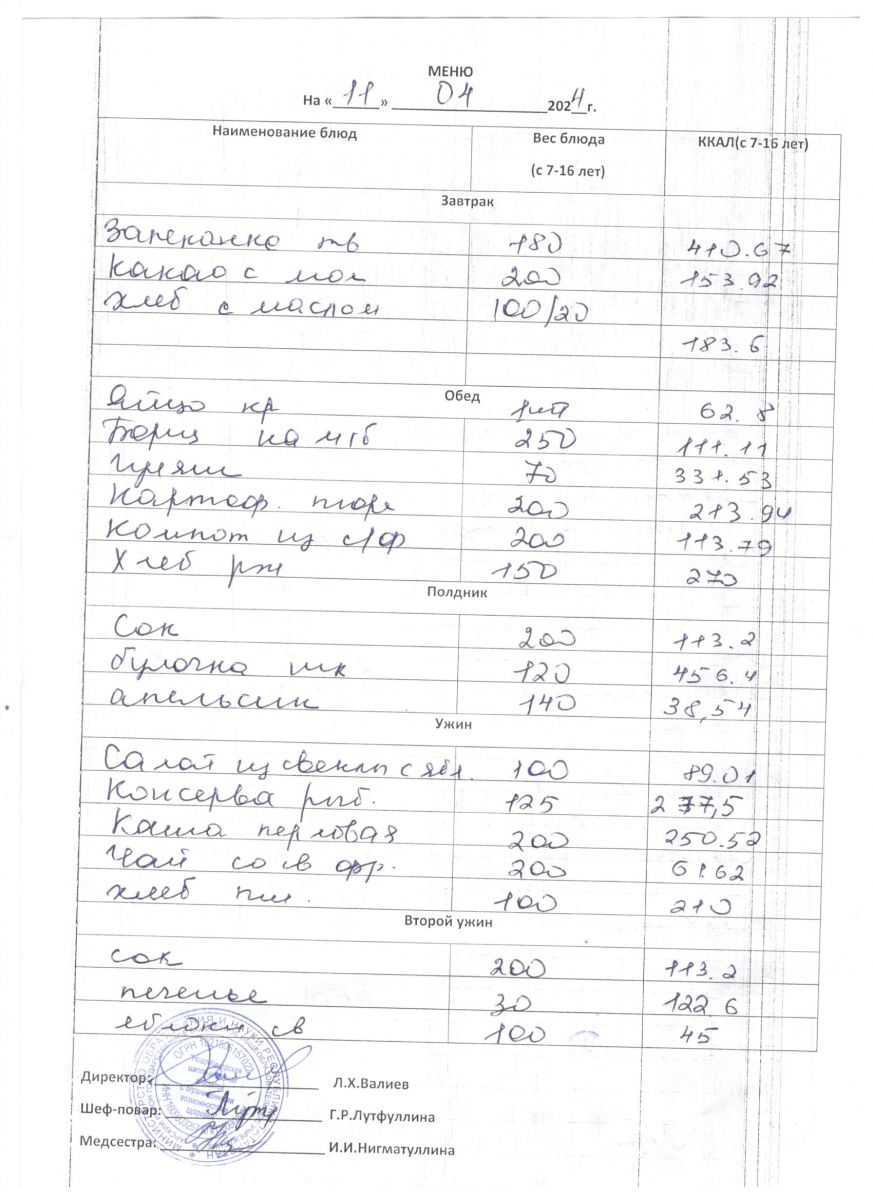 МЕНЮ
На «11» 04 2024г.
Наименование блюд Вес блюда (с 7-16 лет) ККАЛ(с 7-16 лет)
Завтрак
Запеканка тв 180 410.67
Какао с мол 200 153.92
Хлеб с маслом 100/20
183.6
Обед
Яйцо кр 1шт 62.8
Борщ на м/б 250 111.11
70 331.53
Картоф. пюре 200 213.94
Компот из с/ф 200 113.79
Хлеб рж 150 270
Полдник
Сок 200 113.2
булочка шк 120 456.4
апельсин 140 38,54
Ужин
Салат из свеклы с ябл. 100 89.01
Консерва рыб. 125 277,5
Каша перловая 200 250.52
Чай со св фр. 200 61.62
хлеб пш. 100 210
Второй ужин
сок 200 113.2
печенье 30 122.6
яблоки св 100 45
Директор: Л.Х.Валиев
Шеф-повар: Г.Р.Лутфуллина
Медсестра: И.И.Нигматуллина